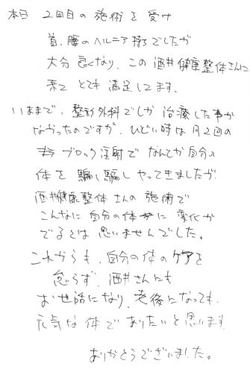 本日 2回目の施術を受け
首、腰のヘルニア持ちでしたが
大分良くなり、この酒井健康整体さんに
来て とても満足してます。
いままで、整形外科でしか治療した事が
なかったのですが、ひどい時は月2回の
ブロック注射で なんとか自分の
体を騙し騙しやってきましたが
酒井健康整体さんの施術で
こんなに自分の体が変化が
でるとは思いませんでした。
これからも、自分の体のケアを
怠らず、酒井さんにも
お世話になり、老後になっても、
元気な体でありたいと思います
ありがとうございました。